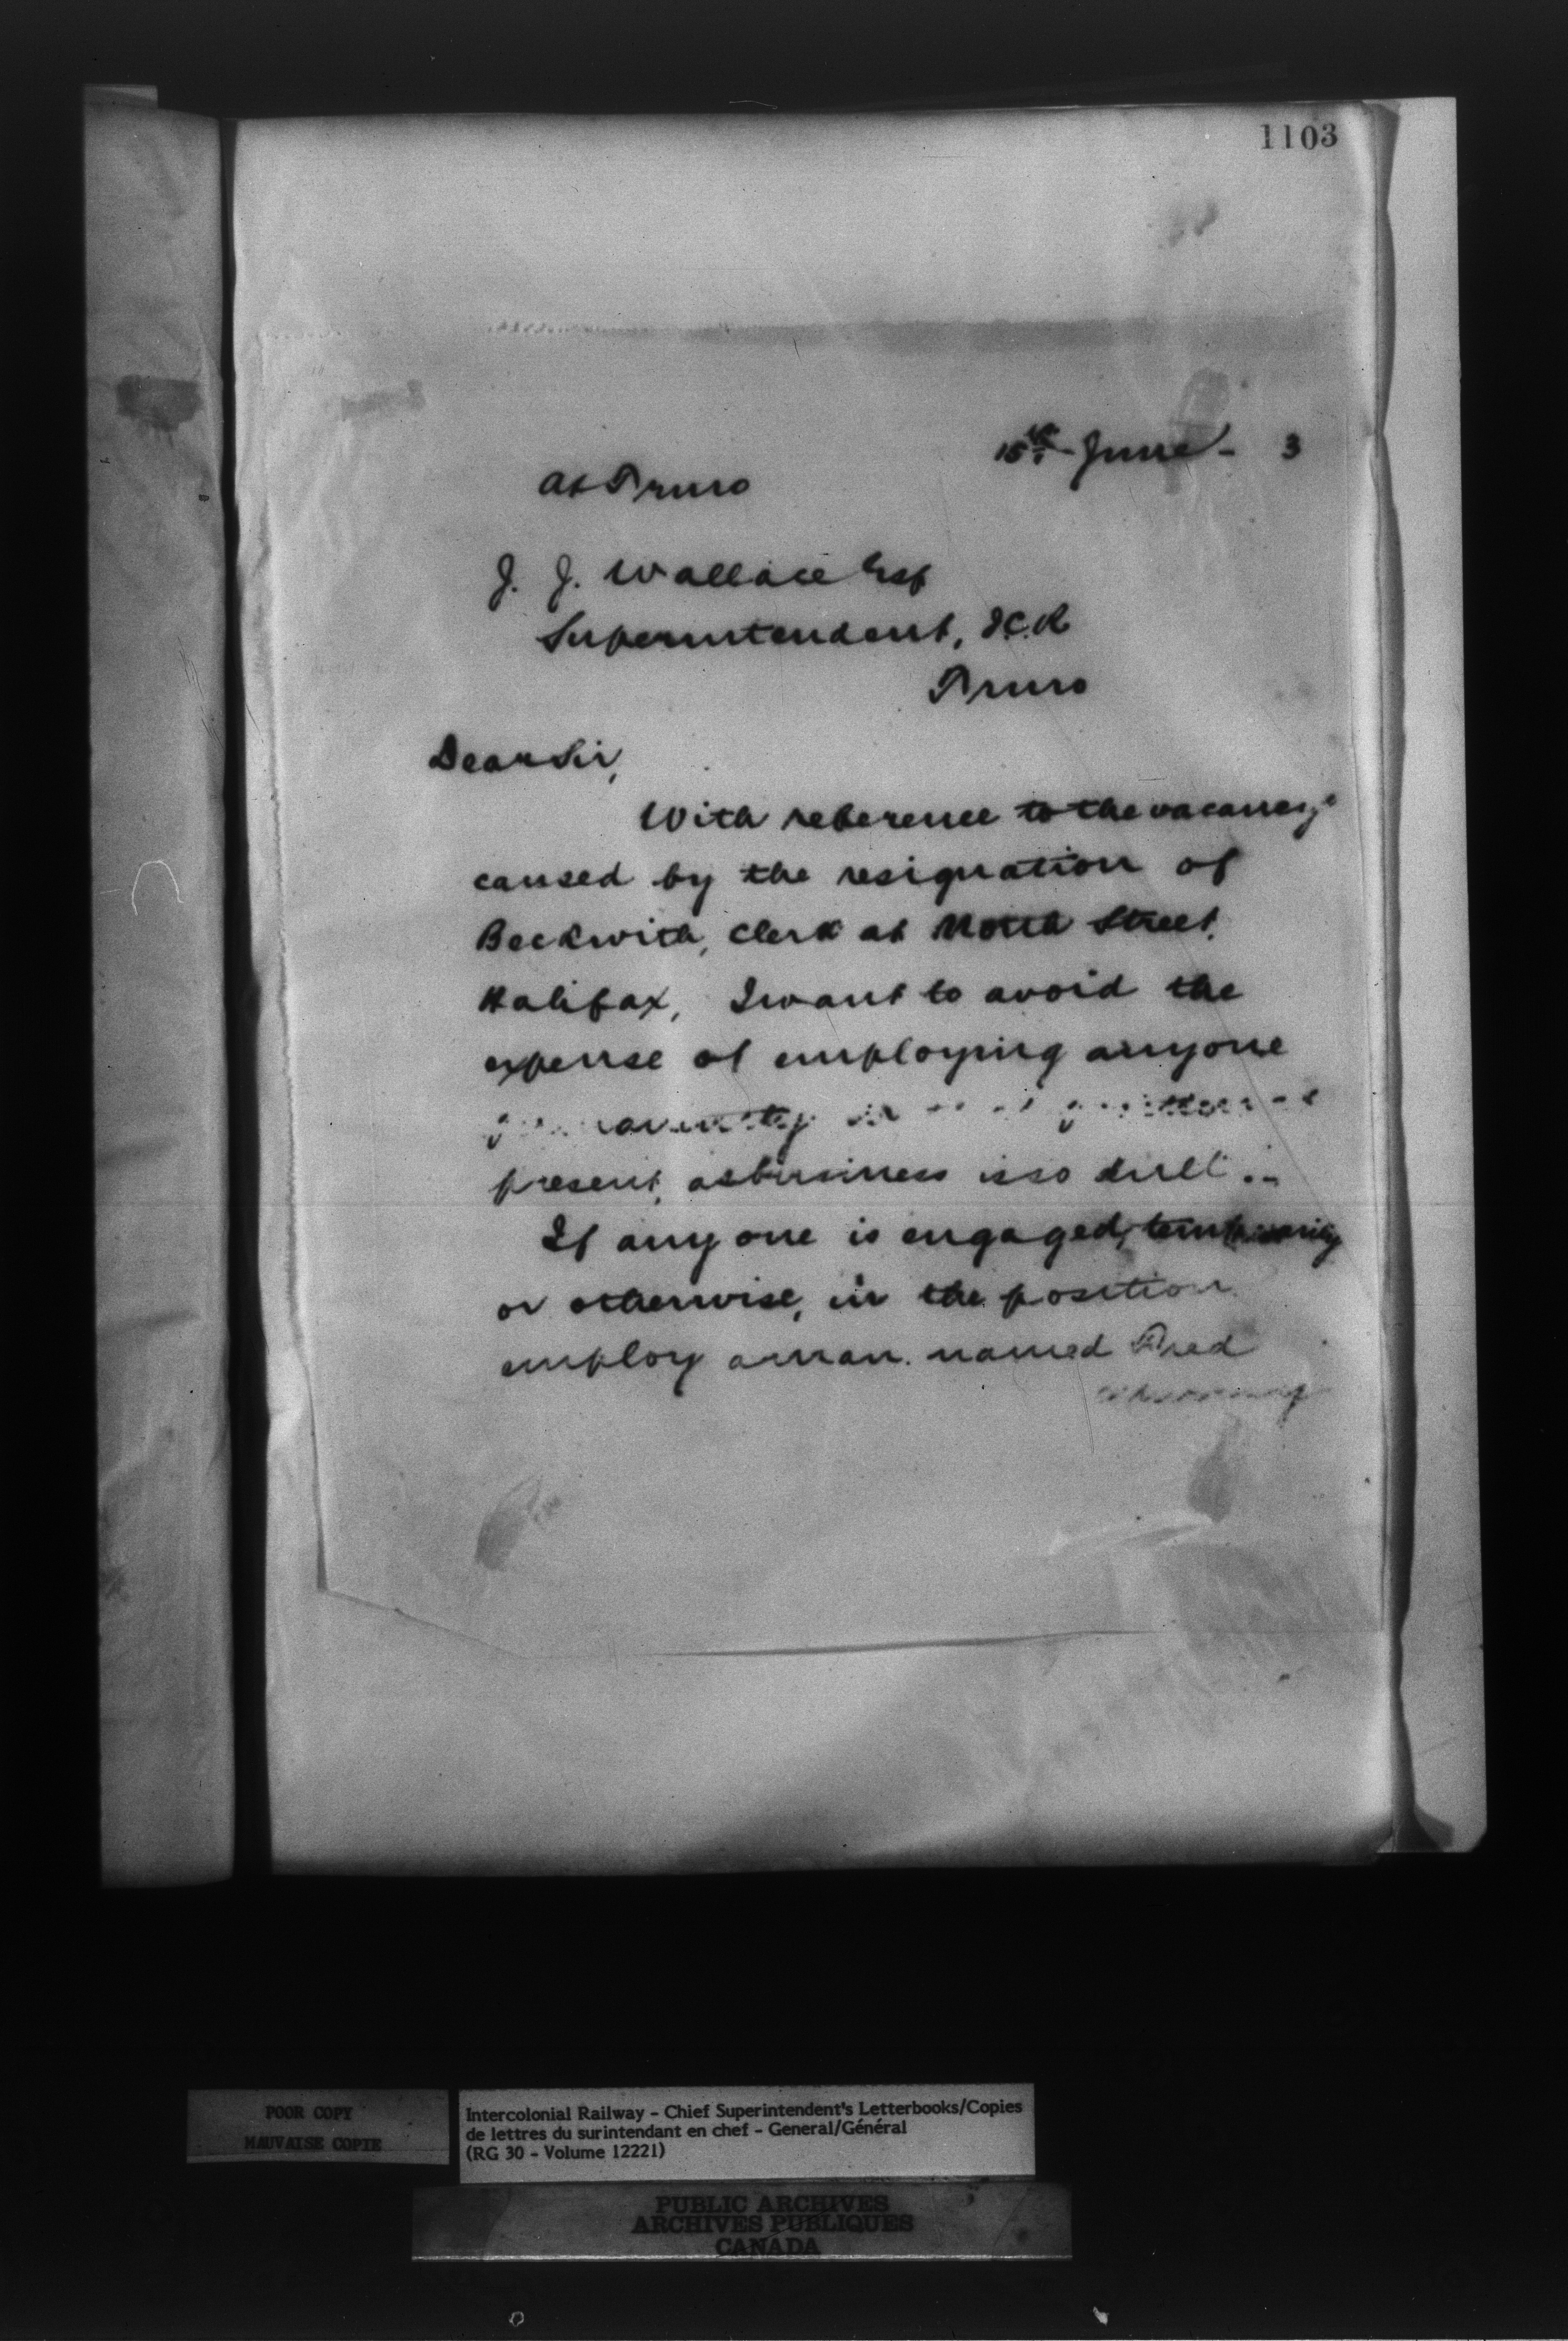 1103
15th June - 3
At Truro
J. J. Wallace Esq
Superintendent, I.C.R
Truro
Dear Sir,
With reference to the vacancy
caused by the resignation of
Beckwith, Clerk at North Street
Halifax, I want to avoid the
expense of employing anyone
present, as business is so dull.
If any one is engaged, temporarily
or otherwise, in the position
employ a man named Fred
POOR COPY
MAUVAISE COPIE
Intercolonial Railway - Chief Superintendent's Letterbooks/Copies
de lettres du surintendant en chef - General/Général
(RG 30 - Volume 12221)
PUBLIC ARCHIVES
ARCHIVES PUBLIQUES
CANADA